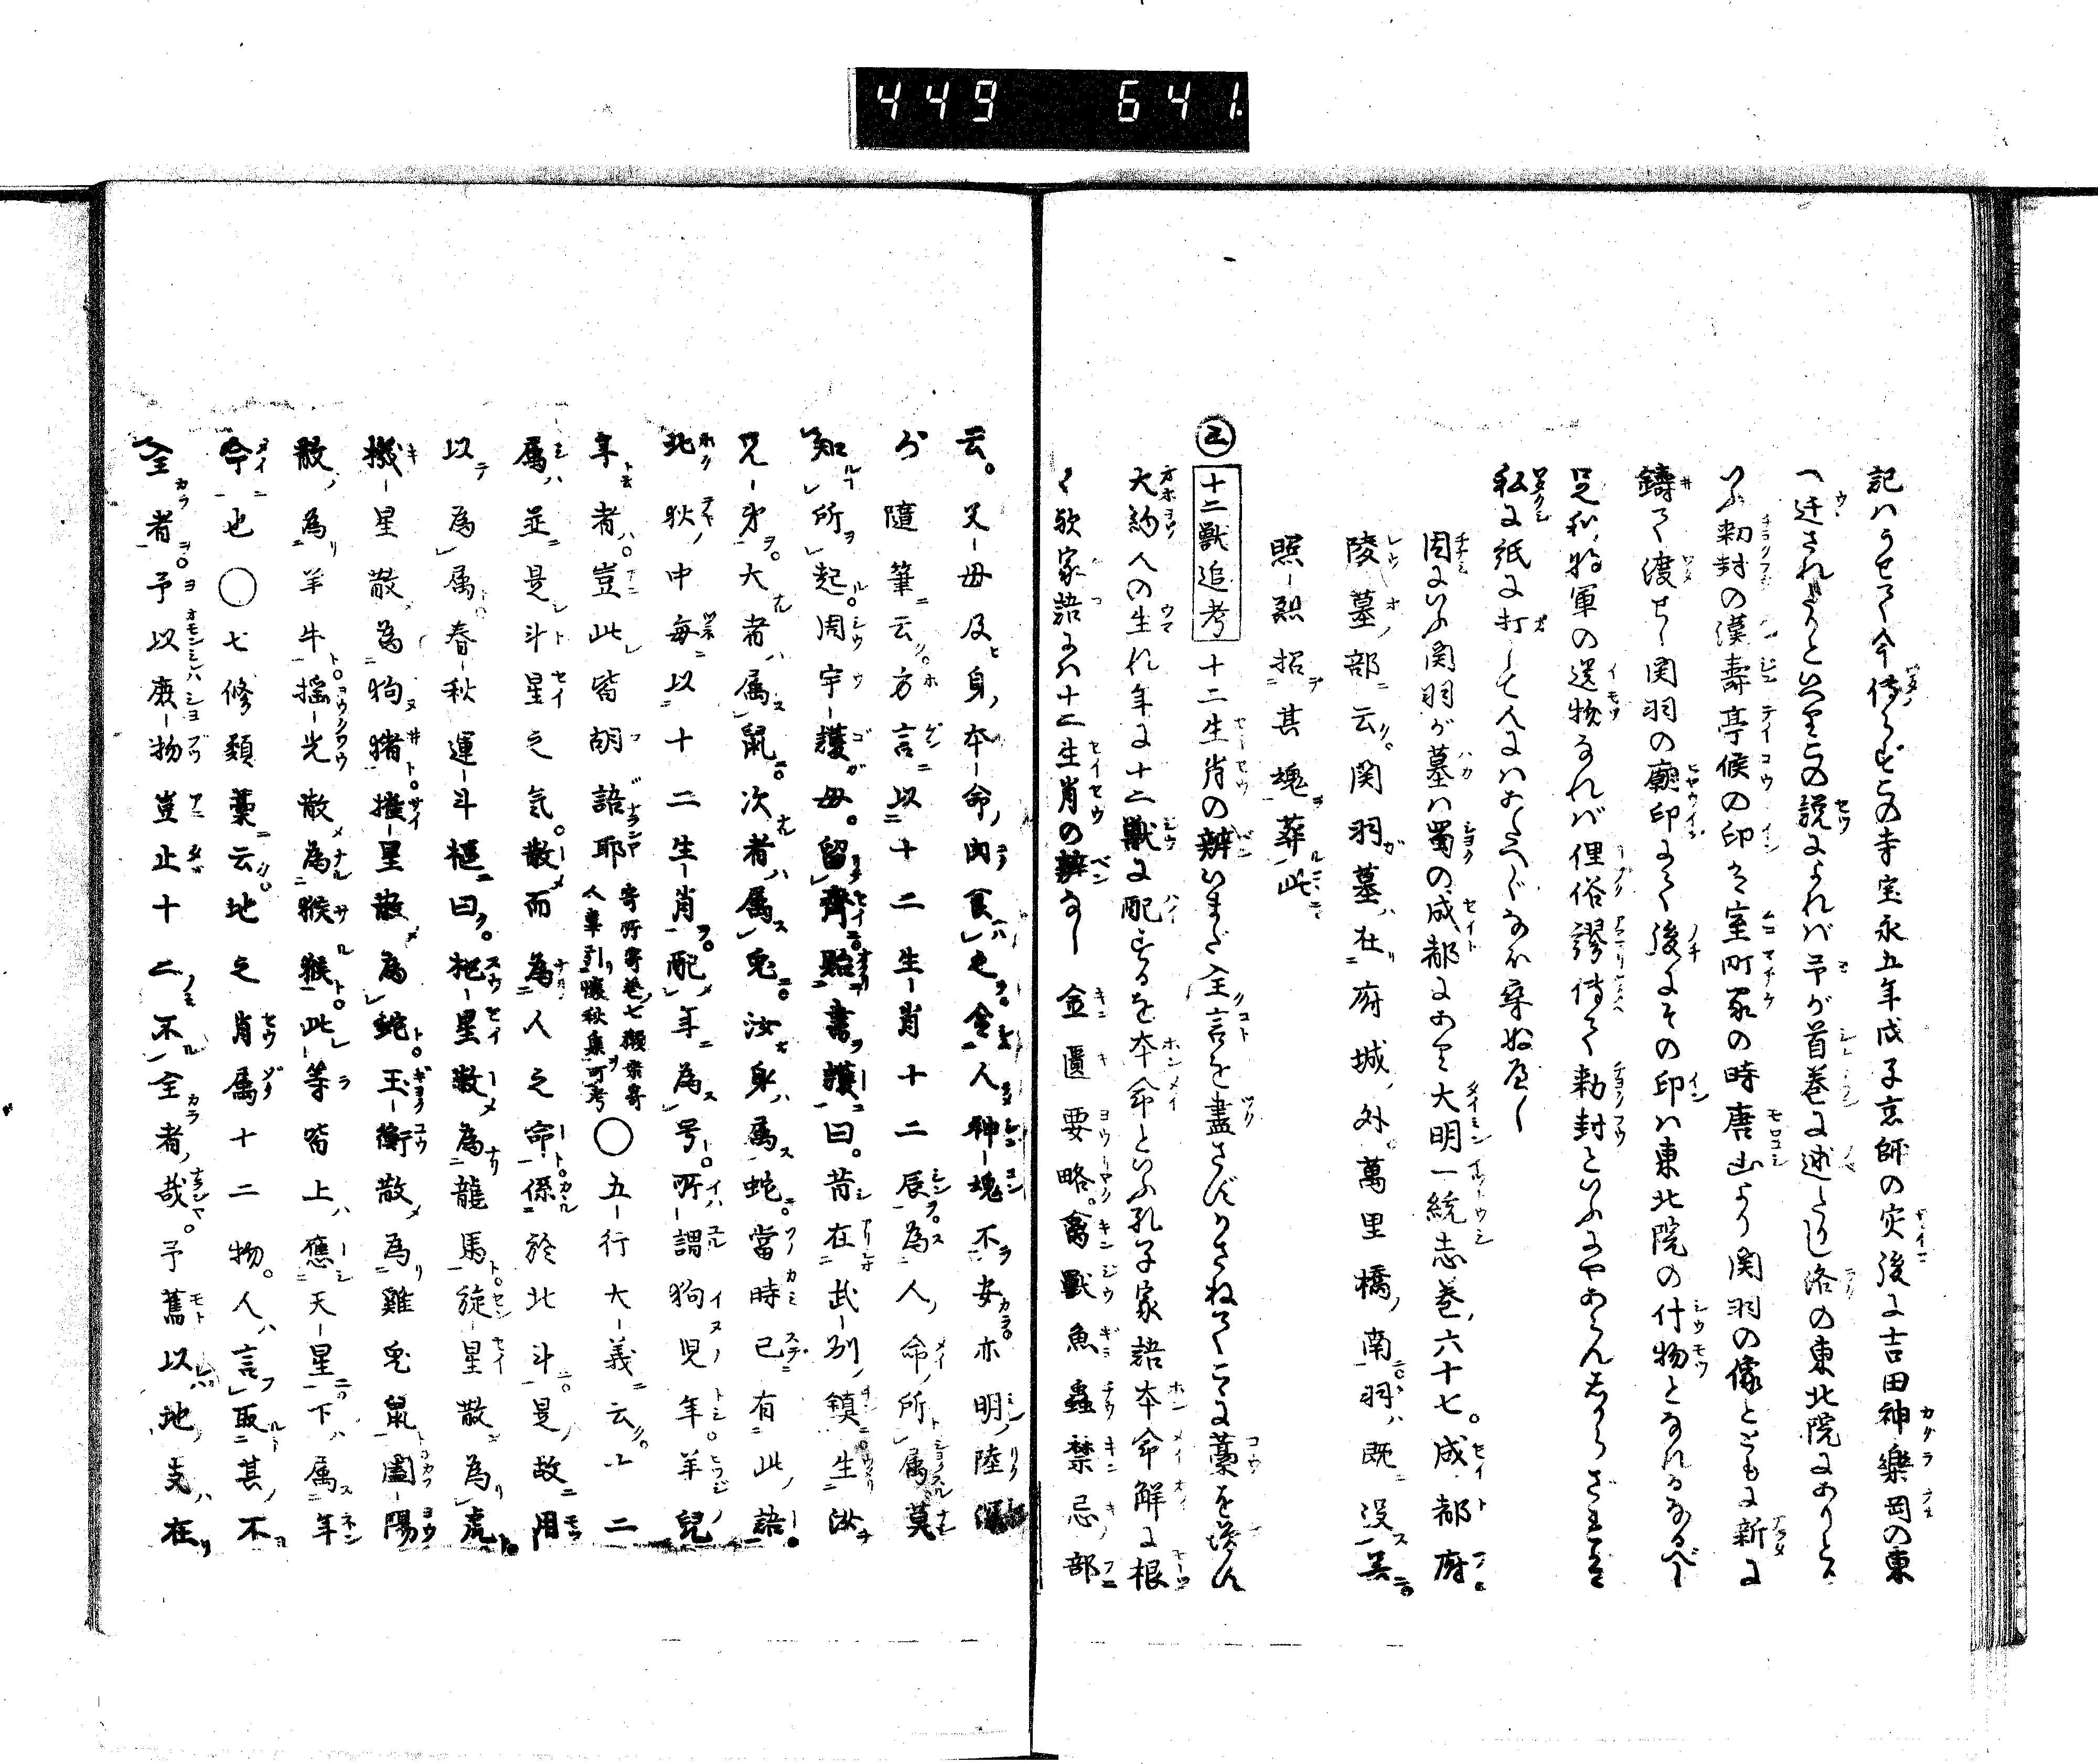 449 641.
記ハうせて今傳らずこの寺宝永五年戊子京師の灾後に吉田神樂岡の東
へ迁されきといへりこの説によれバ予が首巻に述たりし洛の東北院にありとも
いふ勅封の漢壽亭侯の印は室町家の時唐山より関羽の像とともに新に
鑄て渡せし関羽の廟印にて後にその印ハ東北院の什物となれるなるべし
足利将軍の送物なれバ俚俗謬傳て勅封といふにやあらんあらざれは
私に紙に打して人にハあたへがたなほ尋ぬべし
因にいふ関羽が墓ハ蜀の成都にあり大明一統志巻六十七。成都府
陵墓部云。関羽墓在府城外。萬里橋南羽既没吴。
照烈招其魂葬此
㊂十二獣追考 十二生肖の辨いまだ全言を盡さずかさねてこゝに藁を添ん
大約人の生れ年に十二獣に配するを本命といふ孔子家語本命解に根
く歟家語にハ十二生肖の辨なし 金匱要略。禽獸魚蟲禁忌部
云。父母及身本命肉食之。令人神魂不安。亦明陸深
ガ隨筆云。方言以十二生肖十二辰為人命所属莫
知所起。周宇護母。留齊。貽書護曰。昔在武別鎮生汝
兄弟。大者属鼠。次者属兎。汝身属蛇。當時已有此語。
北狄中每以十二生肖配年為号。所謂狗児年羊兒
年者。豈此皆胡語耶 寄所寄巻七獺祭寄人事引懐秋集可考 ○五行大義云。十二
属並是斗星之気。散而為人之命係於北斗是故用
以為属。春秋運斗樞曰。樞星散為龍馬旋星散為虎
機星散為狗猪摧星散為蛇。玉衡散為雞兎鼠闓陽
散為羊牛揺光散為猴猨此等皆上應天星下属年
命也○七修類藁云地之肖属十二物。人言取其不
全者予以庶物豈止十二不全者哉。予舊以地支在